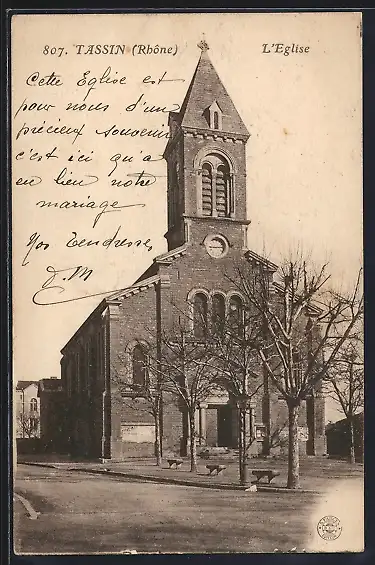 807. TASSIN (Rhône) L'Eglise
Cette Eglise est
pour nous d'un
précieux souvenir
c'est ici qu'a
en lieu notre
mariage
Nos Tendresses